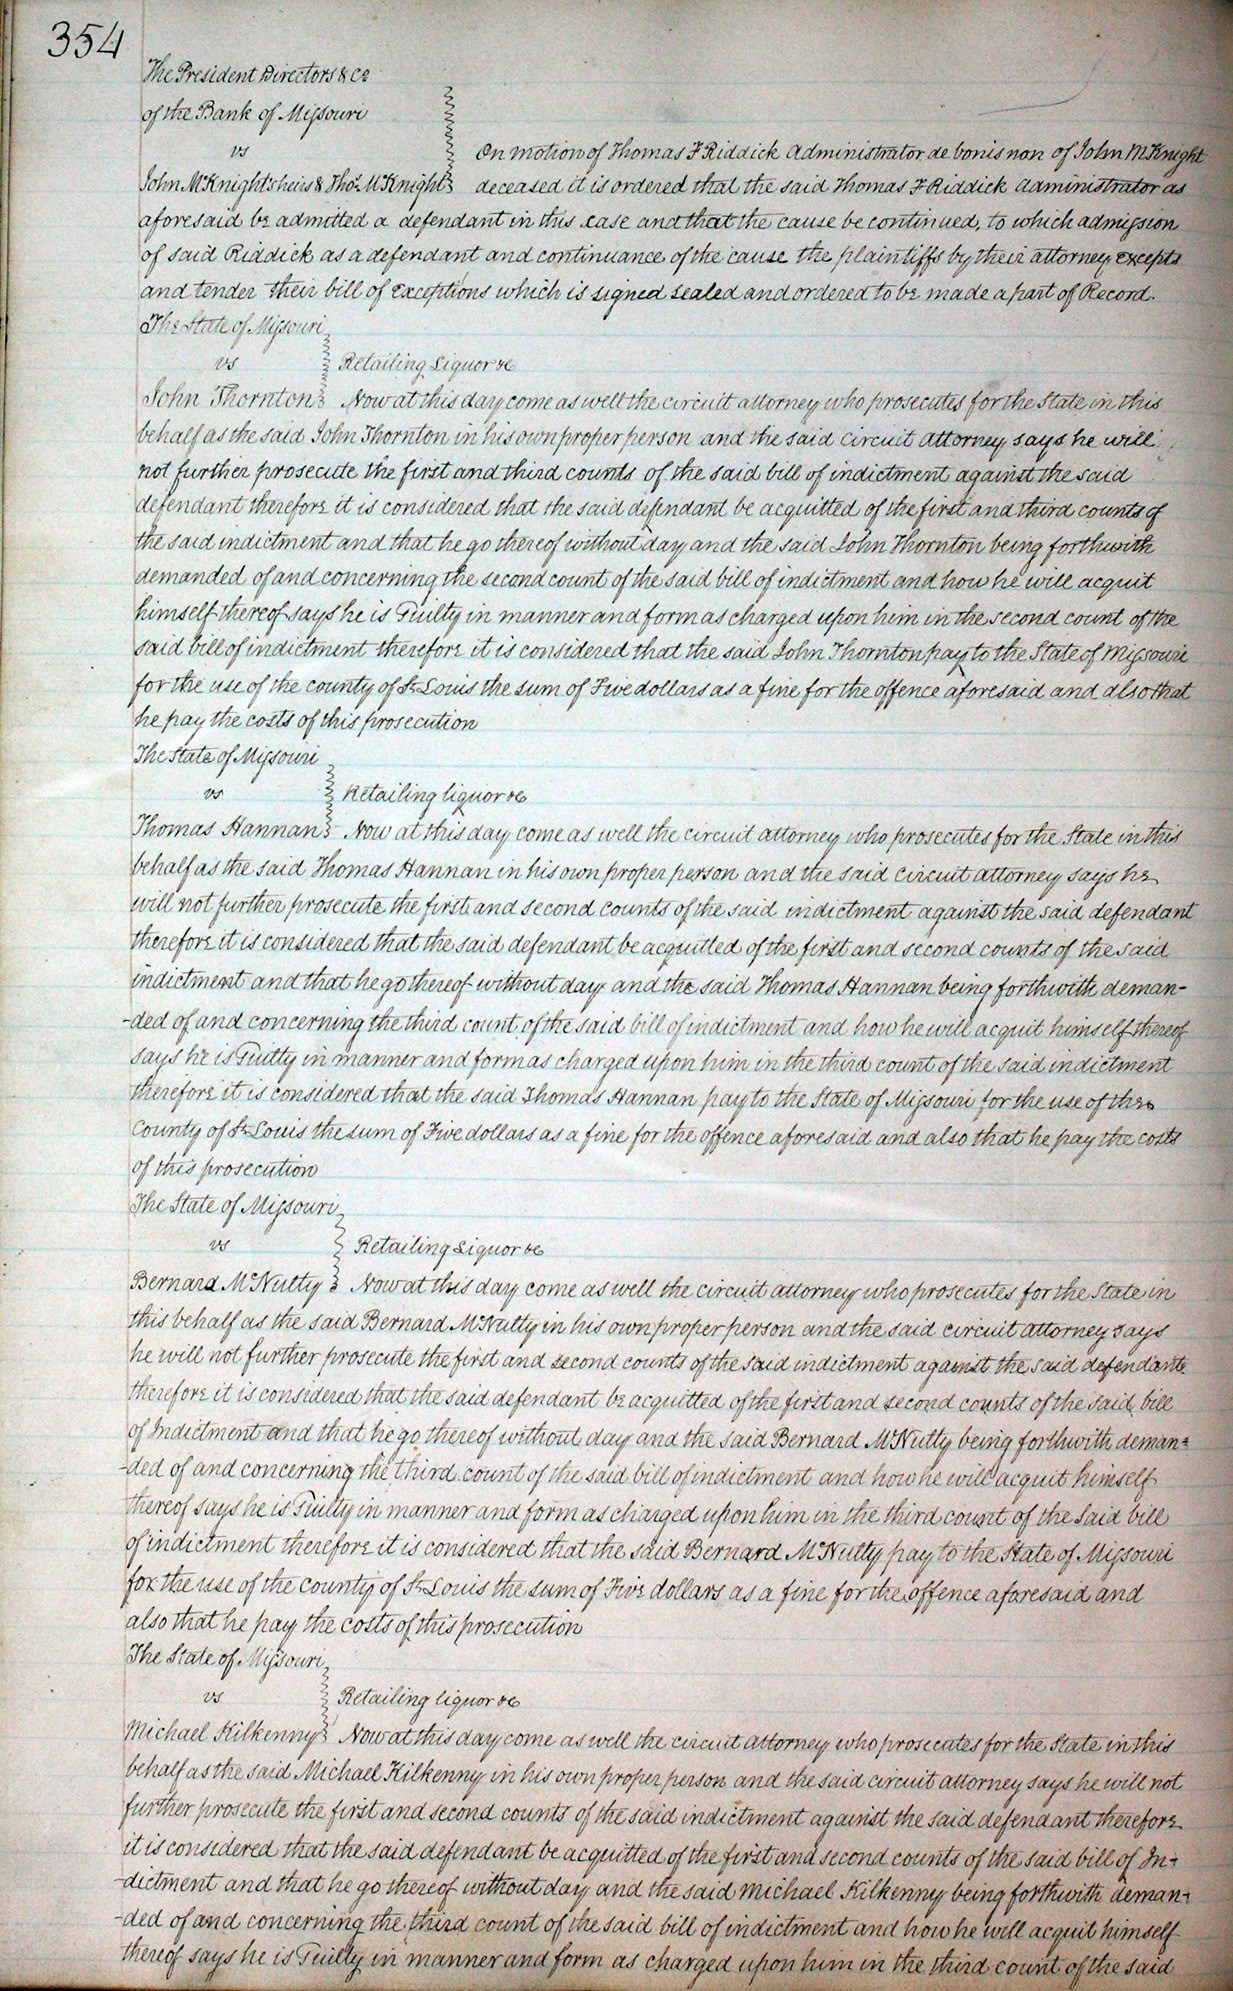 354
The President Directors & Co
of the Bank of Missouri
vs
On motion of Thomas F Riddick Administrator de bonis non of John McKnight
John McKnight's heirs & Thos McKnight deceased it is ordered that the said Thomas F Riddick Administrator as
aforesaid be admitted a defendant in this case and that the cause be continued, to which admission
of said Riddick as a defendant and continuance of the cause the plaintiffs by their attorney excepts
and tender their bill of exceptions which is signed sealed and ordered to be made a part of Record.
The State of Missouri
vs Retailing Liquor &c
John Thornton Now at this day come as well the circuit attorney who prosecutes for the State in this
behalf as the said John Thornton in his own proper person and the said circuit attorney says he will
not further prosecute the first and third counts of the said bill of indictment against the said
defendant therefore it is considered that the said defendant be acquitted of the first and third counts of
the said indictment and that he go thereof without day and the said John Thornton being forthwith
demanded of and concerning the second count of the said bill of indictment and how he will acquit
himself thereof says he is Guilty in manner and form as charged upon him in the second count of the
said bill of indictment therefore it is considered that the said John Thornton pay to the State of Missouri
for the use of the county of St Louis the sum of Five dollars as a fine for the offence aforesaid and also that
he pay the costs of this prosecution
The State of Missouri
vs Retailing liquor &c
Thomas Hannan Now at this day come as well the circuit attorney who prosecutes for the State in this
behalf as the said Thomas Hannan in his own proper person and the said circuit attorney says he
will not further prosecute the first and second counts of the said indictment against the said defendant
therefore it is considered that the said defendant be acquitted of the first and second counts of the said
indictment and that he go thereof without day and the said Thomas Hannan being forthwith deman-
-ded of and concerning the third count of the said bill of indictment and how he will acquit himself thereof
says he is Guilty in manner and form as charged upon him in the third count of the said indictment
therefore it is considered that the said Thomas Hannan pay to the State of Missouri for the use of the
County of St Louis the sum of Five dollars as a fine for the offence aforesaid and also that he pay the costs
of this prosecution
The State of Missouri
vs Retailing Liquor &c
Bernard McNulty Now at this day come as well the circuit attorney who prosecutes for the State in
this behalf as the said Bernard McNulty in his own proper person and the said circuit attorney says
he will not further prosecute the first and second counts of the said indictment against the said defendant
therefore it is considered that the said defendant be acquitted of the first and second counts of the said bill
of Indictment and that he go thereof without day and the said Bernard McNulty being forthwith deman-
-ded of and concerning the third count of the said bill of indictment and how he will acquit himself
thereof says he is Guilty in manner and form as charged upon him in the third count of the said bill
of indictment therefore it is considered that the said Bernard McNulty pay to the State of Missouri
for the use of the county of St Louis the sum of Five dollars as a fine for the offence aforesaid and
also that he pay the costs of this prosecution
The State of Missouri
vs Retailing liquor &c
Michael Kilkenny Now at this day come as well the circuit attorney who prosecutes for the State in this
behalf as the said Michael Kilkenny in his own proper person and the said circuit attorney says he will not
further prosecute the first and second counts of the said indictment against the said defendant therefore
it is considered that the said defendant be acquitted of the first and second counts of the said bill of In-
-dictment and that he go thereof without day and the said Michael Kilkenny being forthwith deman-
-ded of and concerning the third count of the said bill of indictment and how he will acquit himself
thereof says he is Guilty in manner and form as charged upon him in the third count of the said